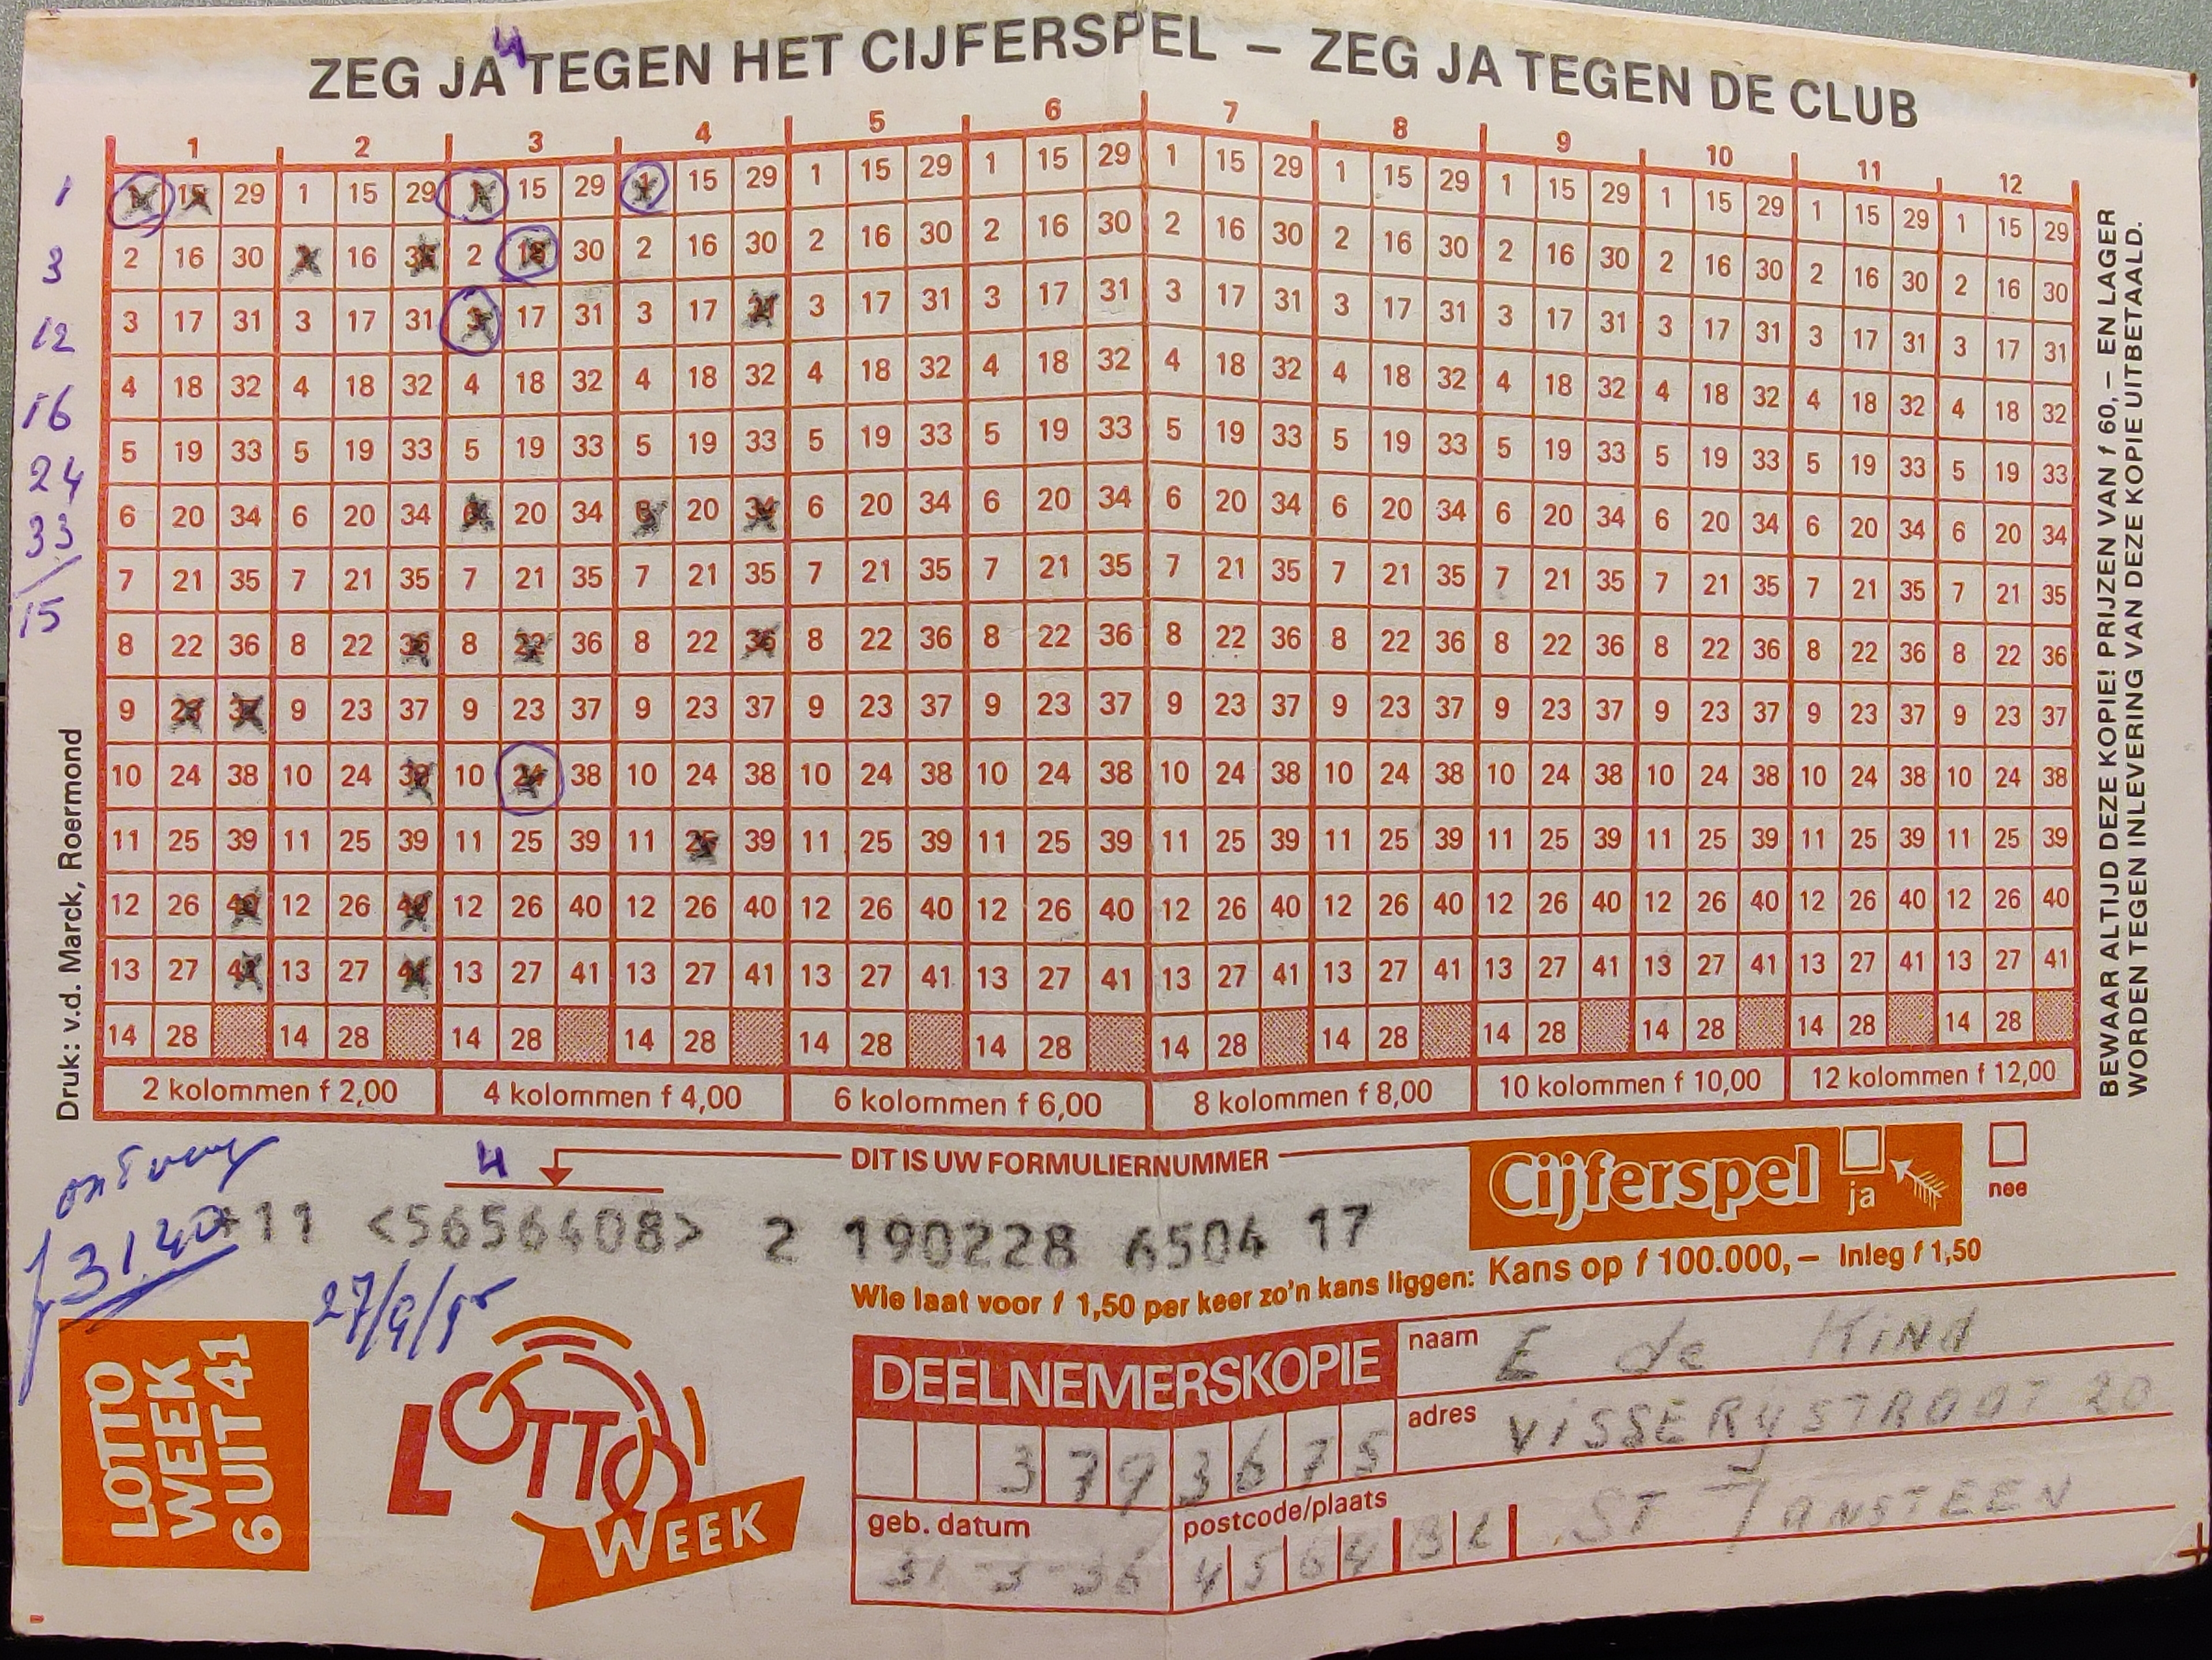 4
ZEG JA TEGEN HET CIJFERSPEL – ZEG JA TEGEN DE CLUB
1 2 3 4 5 6 7 8 9 10 11 12
15 29 1 15 29 15 29 1 15 29 1 15 29 1 15 29 1 15 29 1 15 29 1 15 29 1 15 29 1 15 29 1 15 29
2 16 30 2 16 30 2 16 30 2 16 30 2 16 30 2 16 30 2 16 30 2 16 30 2 16 30 2 16 30 2 16 30 2 16 30
3 17 31 3 17 31 3 17 31 3 17 31 3 17 31 3 17 31 3 17 31 3 17 31 3 17 31 3 17 31 3 17 31 3 17 31
4 18 32 4 18 32 4 18 32 4 18 32 4 18 32 4 18 32 4 18 32 4 18 32 4 18 32 4 18 32 4 18 32 4 18 32
5 19 33 5 19 33 5 19 33 5 19 33 5 19 33 5 19 33 5 19 33 5 19 33 5 19 33 5 19 33 5 19 33 5 19 33
6 20 34 6 20 34 6 20 34 6 20 34 6 20 34 6 20 34 6 20 34 6 20 34 6 20 34 6 20 34 6 20 34 6 20 34
7 21 35 7 21 35 7 21 35 7 21 35 7 21 35 7 21 35 7 21 35 7 21 35 7 21 35 7 21 35 7 21 35 7 21 35
8 22 36 8 22 36 8 22 36 8 22 36 8 22 36 8 22 36 8 22 36 8 22 36 8 22 36 8 22 36 8 22 36 8 22 36
9 23 37 9 23 37 9 23 37 9 23 37 9 23 37 9 23 37 9 23 37 9 23 37 9 23 37 9 23 37 9 23 37 9 23 37
10 24 38 10 24 38 10 24 38 10 24 38 10 24 38 10 24 38 10 24 38 10 24 38 10 24 38 10 24 38 10 24 38 10 24 38
11 25 39 11 25 39 11 25 39 11 25 39 11 25 39 11 25 39 11 25 39 11 25 39 11 25 39 11 25 39 11 25 39 11 25 39
12 26 40 12 26 40 12 26 40 12 26 40 12 26 40 12 26 40 12 26 40 12 26 40 12 26 40 12 26 40 12 26 40 12 26 40
13 27 41 13 27 41 13 27 41 13 27 41 13 27 41 13 27 41 13 27 41 13 27 41 13 27 41 13 27 41 13 27 41 13 27 41
14 28 14 28 14 28 14 28 14 28 14 28 14 28 14 28 14 28 14 28 14 28 14 28
2 kolommen f 2,00 4 kolommen f 4,00 6 kolommen f 6,00 8 kolommen f 8,00 10 kolommen f 10,00 12 kolommen f 12,00
1
3
12
16
24
33
15
Druk: v.d. Marck, Roermond
BEWAAR ALTIJD DEZE KOPIE! PRIJZEN VAN f 60,– EN LAGER
WORDEN TEGEN INLEVERING VAN DEZE KOPIE UITBETAALD.
4
DIT IS UW FORMULIERNUMMER
11 <5656408> 2 190228 6504 17
f 31.40
27/9/95
Cijferspel ja nee
Wie laat voor f 1,50 per keer zo'n kans liggen: Kans op f 100.000,– Inleg f 1,50
LOTTO
WEEK
6 UIT 41
LOTTO
WEEK
DEELNEMERSKOPIE
3793675
geb. datum
31-3-36
naam E de Kind
adres VISSERYSTRAAT 20
postcode/plaats
4564 BL ST JANSTEEN